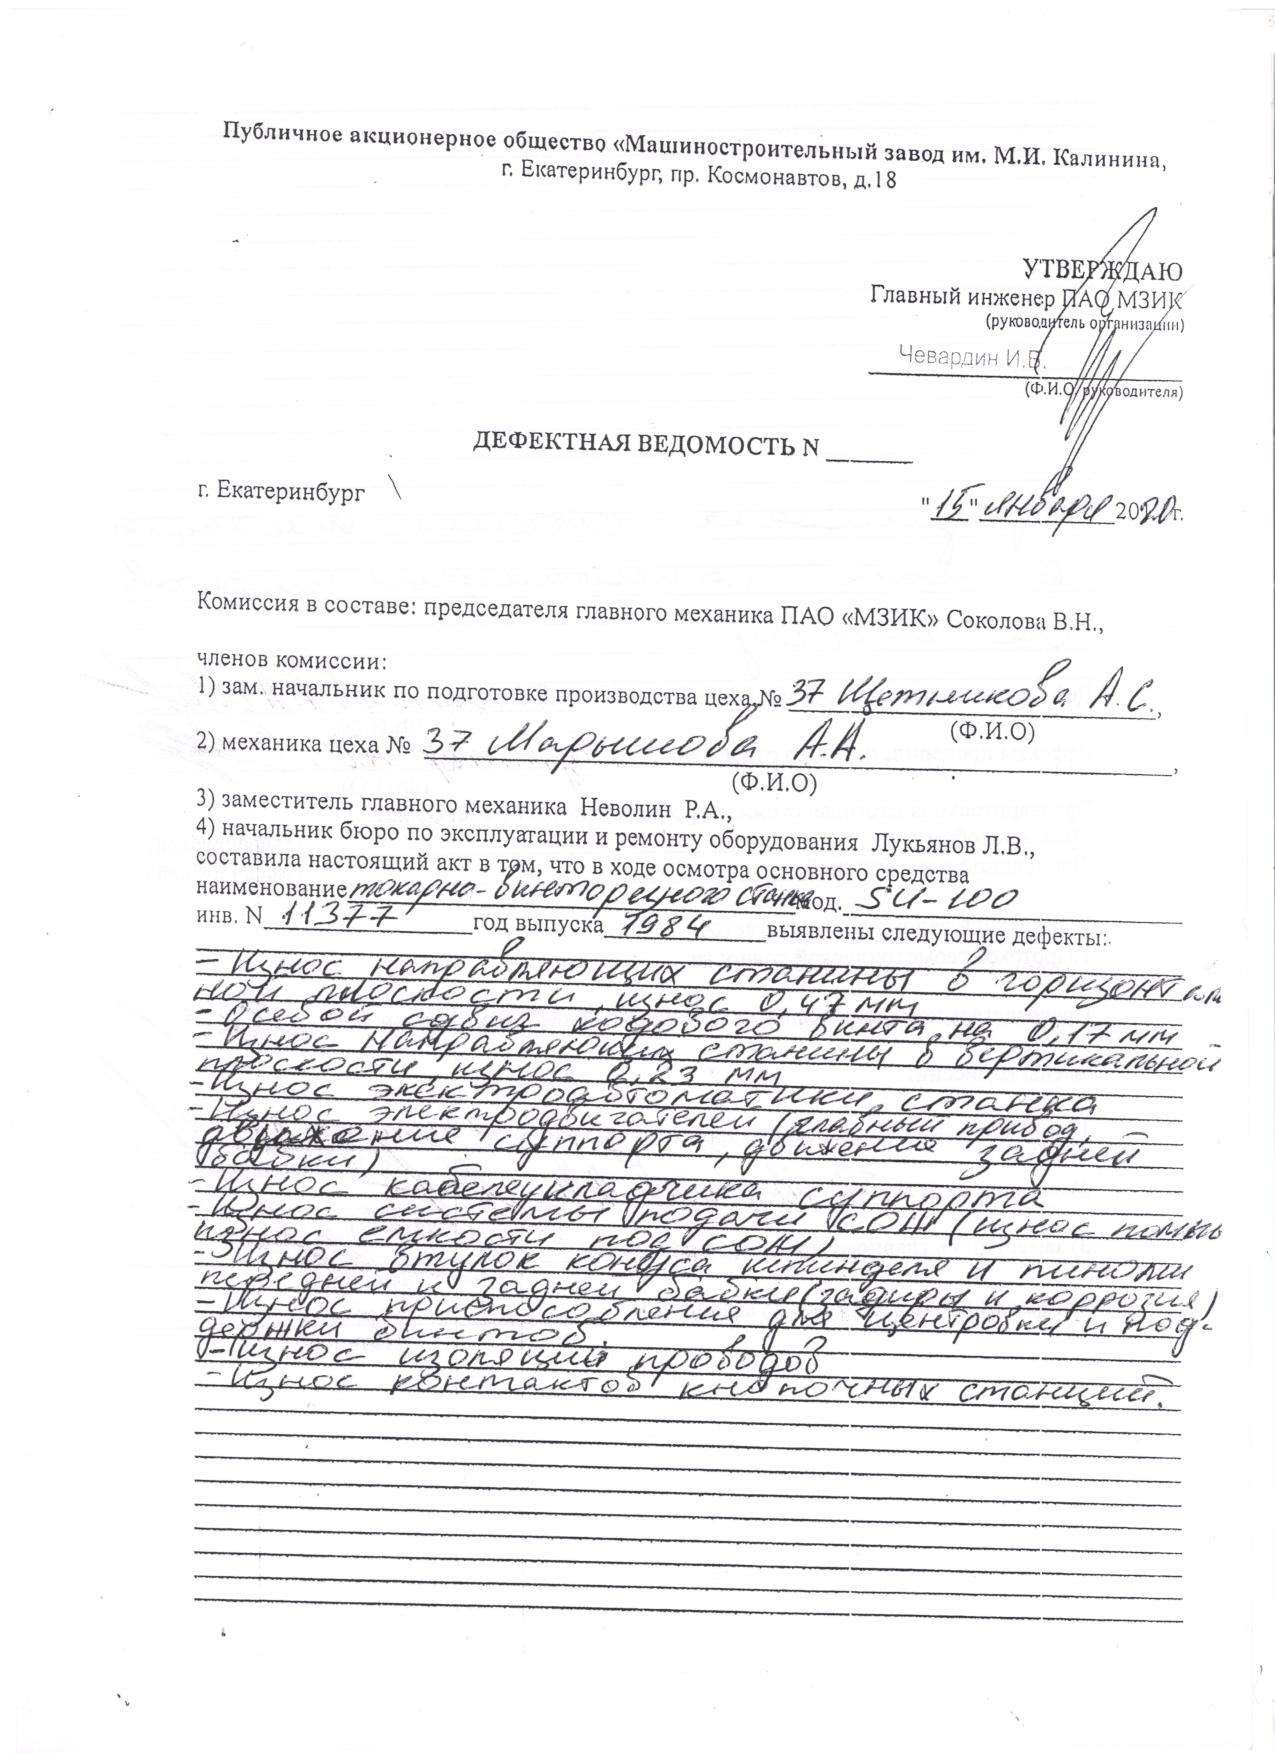 Публичное акционерное общество «Машиностроительный завод им. М.И. Калинина,
г. Екатеринбург, пр. Космонавтов, д.18
УТВЕРЖДАЮ
Главный инженер ПАО МЗИК
(руководитель организации)
Чевардин И.В.
(Ф.И.О руководителя)
ДЕФЕКТНАЯ ВЕДОМОСТЬ N ______
г. Екатеринбург
"15" января 2020г.
Комиссия в составе: председателя главного механика ПАО «МЗИК» Соколова В.Н.,
членов комиссии:
1) зам. начальник по подготовке производства цеха № 37 Щетникова А.С.,
(Ф.И.О)
2) механика цеха № 37 Марышова А.А.,
(Ф.И.О)
3) заместитель главного механика Неволин Р.А.,
4) начальник бюро по эксплуатации и ремонту оборудования Лукьянов Л.В.,
составила настоящий акт в том, что в ходе осмотра основного средства
наименование токарно-винторезного станка мод. SU-100
инв. N 11377 год выпуска 1984 выявлены следующие дефекты:
- Износ направляющих станины в горизонталь
ной плоскости, износ 0,47 мм
- Осевой сдвиг ходового винта на 0,17 мм
- Износ направляющих станины в вертикальной
плоскости износ 0,23 мм
- Износ электроавтоматики станка
- Износ электродвигателей (главный привод,
движение суппорта, движение задней
бабки)
- Износ кабелеукладчика суппорта
- Износ системы подачи СОЖ (износ помпы
износ емкости под СОЖ)
- Износ втулок конуса шпинделя и пиноли
передней и задней бабки (задиры и коррозия)
- Износ приспособления для центровки и под-
держки винтов.
- Износ изоляции проводов
- Износ контактов кнопочных станций.